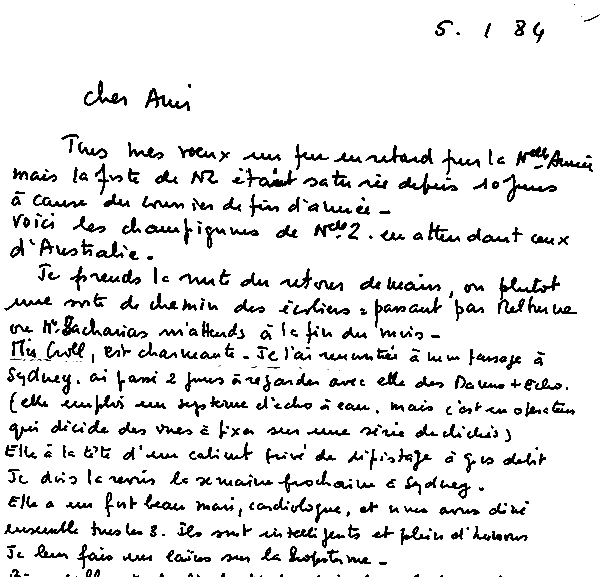 5. 1 84
Cher Ami
Tous mes vœux un peu en retard pour la Nelle Année
mais la poste de NZ était saturée depuis 10 jours
à cause du courrier de fin d'année -
Voici les champignons de Nelle Z. en attendant ceux
d'Australie.
Je prends la route du retour demain, ou plutôt
une sorte de chemin des écoliers : passant par Melbourne
où Mr Zacharias m'attends à la fin du mois -
Miss Croll, est charmante - Je l'ai rencontrée à mon passage à
Sydney. ai passé 2 jours à regarder avec elle des Mammo + Echo.
(elle emploi un système d'écho à eau, mais c'est un opérateur
qui décide des vues à fixer sur une série de clichés)
Elle à la tête d'un cabinet privé de dépistage à gros débit
Je dois la revoir la semaine prochaine à Sydney.
Elle a un fort beau mari, cardiologue, et nous avons diné
ensemble tous les 3. Ils sont intelligents et plein d'humour
Je leur fais un laïus sur la